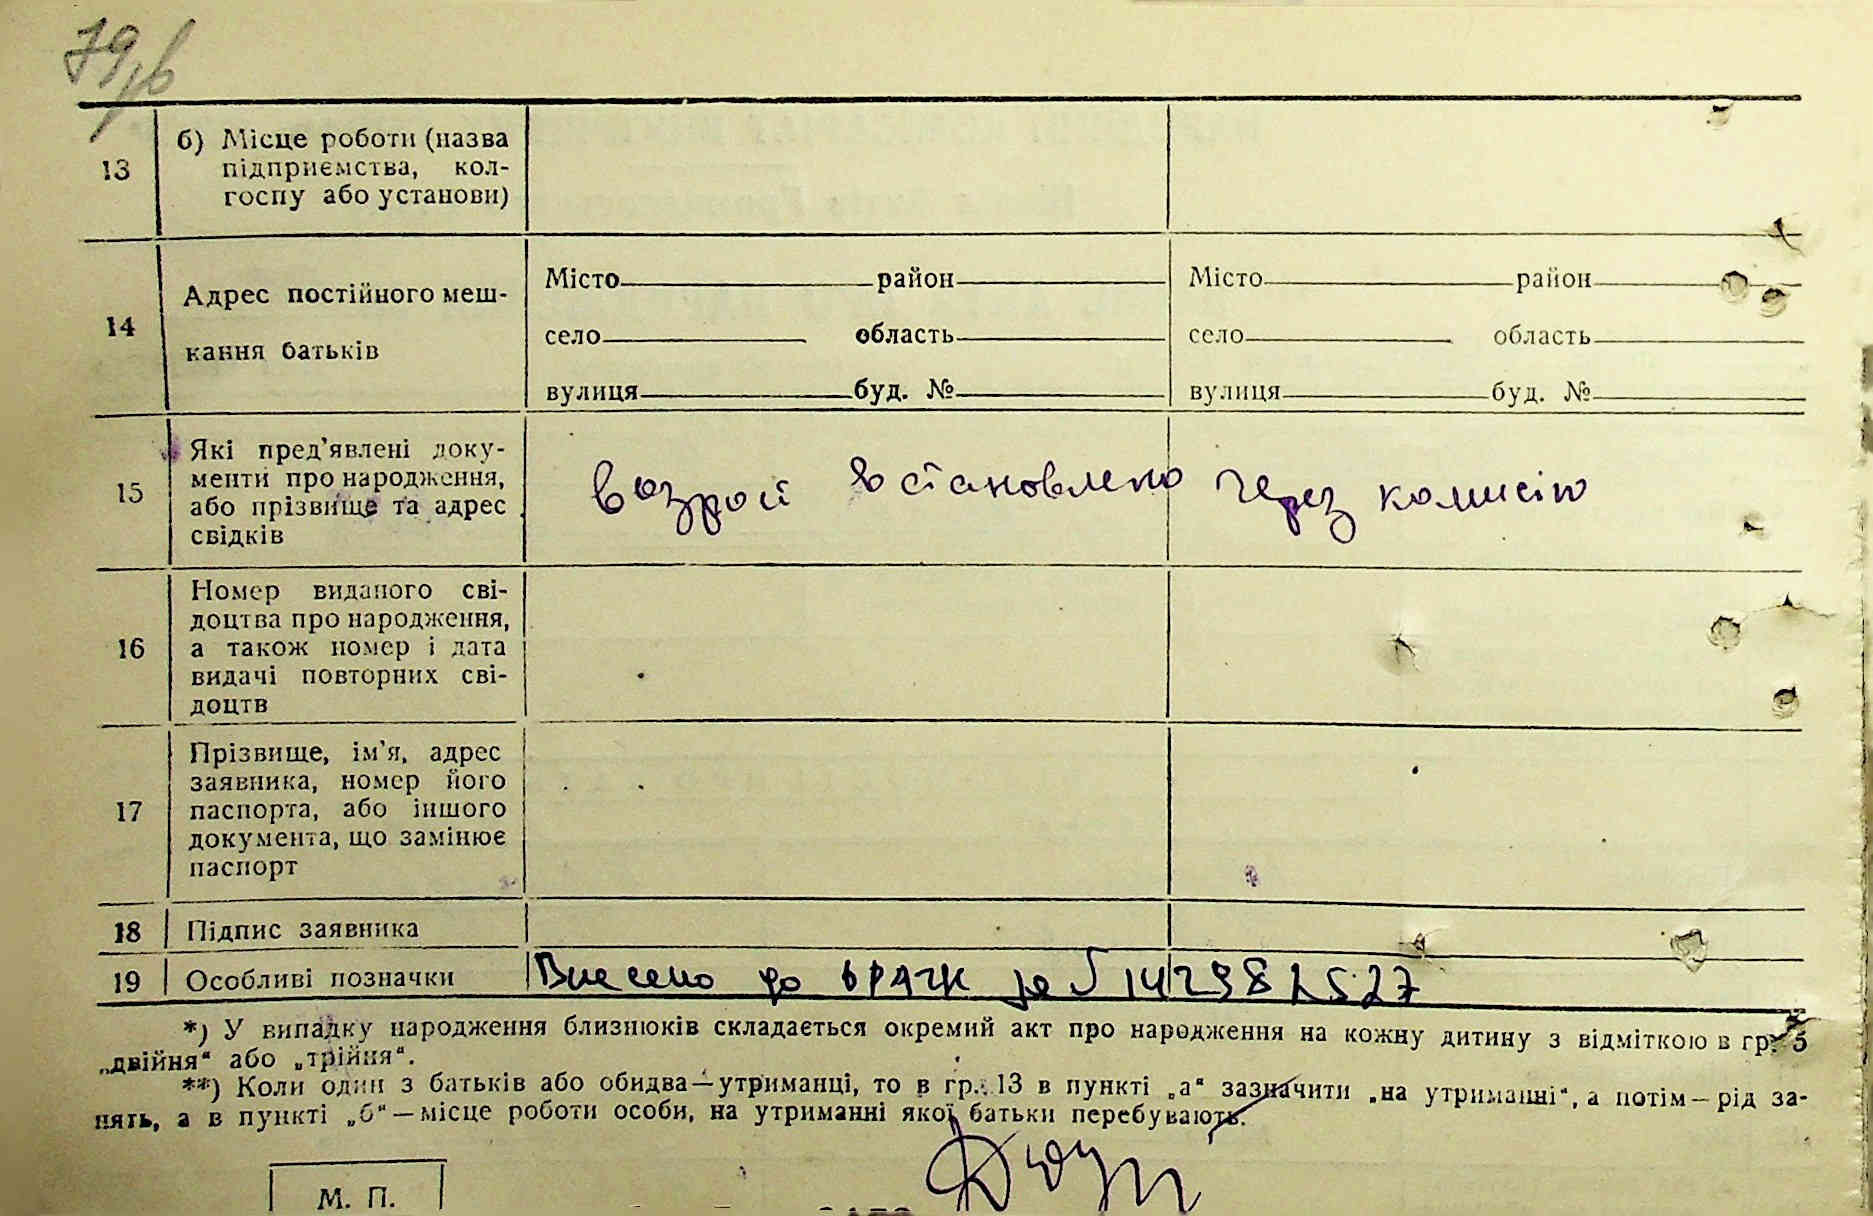 79
13
б) Місце роботи (назва
підприємства, кол-
госпу або установи)
14
Адрес постійного меш-
кання батьків
Місто район Місто район
село область село область
вулиця буд. № вулиця буд. №
15
Які пред'явлені доку-
менти про народження,
або прізвище та адрес
свідків
возраст встановлено через комисію
16
Номер виданого сві-
доцтва про народження,
а також номер і дата
видачі повторних сві-
доцтв
17
Прізвище, ім'я, адрес
заявника, номер його
паспорта, або іншого
документа, що замінює
паспорт
18 Підпис заявника
19 Особливі позначки Внесено до
*) У випадку народження близнюків складається окремий акт про народження на кожну дитину з відміткою в гр. 5
„двійня“ або „трійня“.
**) Коли один з батьків або обидва—утриманці, то в гр. 13 в пункті „а“ зазначити „на утриманні“, а потім—рід за-
нять, а в пункті „б“—місце роботи особи, на утриманні якої батьки перебувають.
М. П.